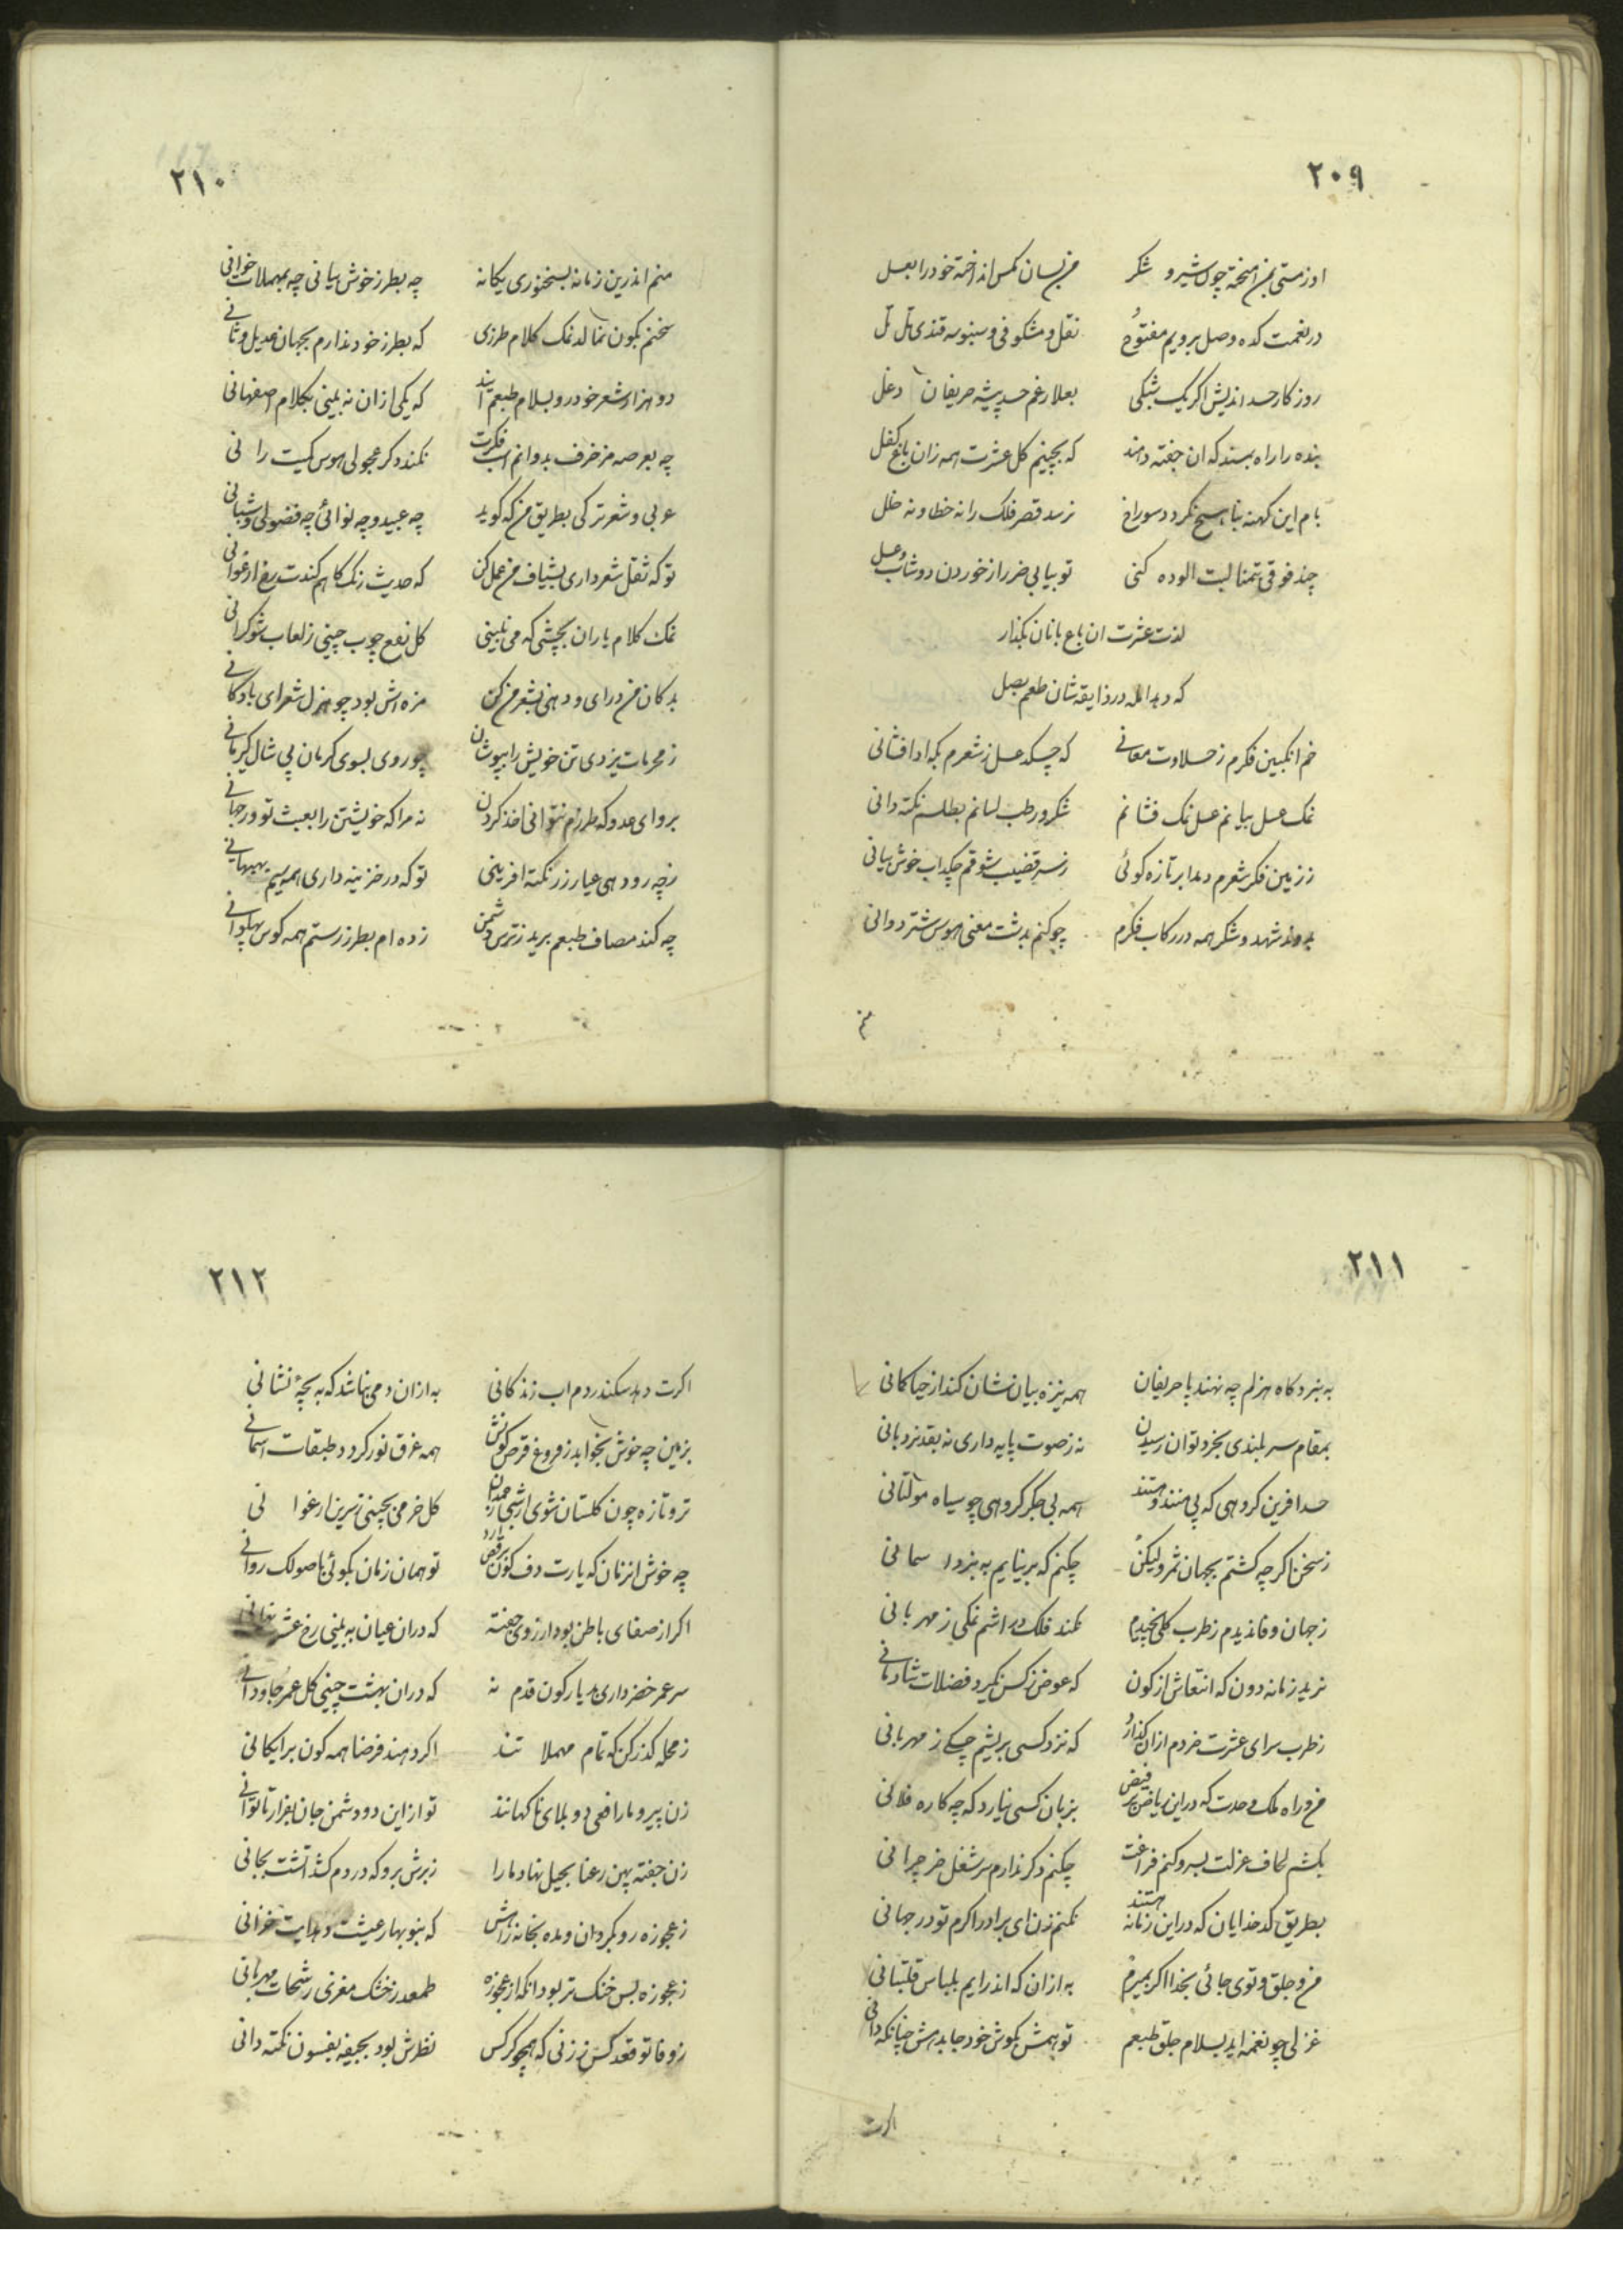 ۲۰۹
او ز مستی بمن امیخته چون شیر و شکر
من بسان مکس انداخته خود را بعسل
در نعمت کده وصل برویم مفتوح
نقل و مشکوفی و سنبوسه قندی تل تل
روزکار حسد اندیش اکر یک شبکی
بعلا رغم حسد پیشه حریفان دغل
بنده را راه بسند که ان جفته دهند
که بچینم کل عشرت همه زان باغ کفل
بام این کهنه بنا هیچ نکردد سوراخ
نرسد قصر فلک را نه خطا و نه خلل
چند فوقی بتمنا لبت الوده کنی
تو بیابی ضرر از خوردن دوشاب و عسل
لذت عشرت ان باغ بانان بکذار
که دهد ابله در ذایقه شان طعم بصل
خم انکبین فکرم ز حلاوت معانی
که چسکد عسل ز شعرم بکه ادا فشانی
نمک عسل بیانم عسل نمک فشانم
شکر و رطب لسانم بطلسم نکته دانی
ز زمین فکر شعرم دمد ابر تازه کوئی
ز سر قضیب شوقم چکد اب خوش بیانی
بدوند شهد و شکر همه در رکاب فکرم
چو کنم بدشت معنی هوس شتر دوانی
منم
۲۱۰
منم اندرین زمانه بسخنوری یکانه
چه بطرز خوش بیانی چه بمهملات خوانی
سخنم بکون نمالد نمک کلام طرزی
که بطرز خود ندارم بجهان عدیل و ثانی
دو هزار شعر خود رو بسلام طبعم آیند
که یکی از ان نه بینی بکلام اصفهانی
چه بعرصه مزخرف بدوانم اسب فکرت
نکند دکر عجولی هوس کمیت رانی
عربی و شعر ترکی بطریق من که کوید
چه عبید و چه نوائی چه فضولی و شبانی
تو که ثقل شعر داری بشیاف من عمل کن
که حدیث زنک کاهم کندت رخ ارغوانی
نمک کلام یاران بچشی که می نبینی
کل نفع چوب چینی ز لعاب شوکرانی
بدکان من درای و دهنی بشعر من کن
مزه اش بود چو هزل شعرای بادکانی
ز محرمات یزدی تن خویش را بپوشان
چو روی بسوی کرمان پی شال کیر مانی
برو ای عدو که طرزم نتوانی اخذ کردن
نه مرا که خویشتن را بعبث تو ورجهانی
ز چه رو دهی عیار زر نکته افرینی
تو که در خزینه داری همه سیم بهبهانی
چه کند مصاف طبعم برید ز ترس دشمن
زده ام بطرز رستم همه کوس پهلوانی
۲۱۱
به نبرد کاه هزلم چه نهند پا حریفان
همه نیزه بیان نشان کند از خیا کانی
بمقام سر بلندی بخرد توان رسیدن
نه ز صوت پایه داری نه بقد نردبانی
حسد افرین کروهی که پی منند و هستند
همه بی جکر کروهی چو سیاه مولتانی
ز سخن اکر چه کشتم بجهان ثمر ولیکن
چکنم که بر نیایم به نبرد اسمانی
ز جهان وفا ندیدم ز طرب کلی نچیدم
نکند فلک در اشم نمکی ز مهربانی
نرید زمانه دون که انتعاش از کون
که عوض ز کس نکیرد فضلات شادمانی
ز طرب سرای عشرت خردم ازان کذارد
که نزد کسی بریشم چسکی ز مهربانی
من و راه ملک وحدت که در این ریاض پر فیض
بزبان کسی نیارد که چه کاره فلانی
بکشم لحاف عزلت بسر و کنم فراغت
چکنم دکر ندارم سر شغل خر چرانی
بطریق کدخدایان که در این زمانه هستند
نکنم زن ای برادر اکرم تو در جهانی
من و جلق و توی جائی بخدا اکر بمیرم
به از ان که اندر ایم بلباس قلتبانی
غزلی چو نغمه اید بسلام جلق طبعم
تو بهمش بکوش خود جا بدهش چنانکه دانی
اکرت
۲۱۲
اکرت دهد سکندر دم اب زندکانی
به ازان دمی نباشد که به بچۀ نشانی
بزمین چه خوش بخوابد ز فروغ قرص کونش
همه غرق نور کردد طبقات اسمانی
تر و تازه چون کلستان شوی ار شبی
کل خرمی بچینی ز سرین ارغوانی
چه خوش انزمان که یارت دف کون برقص ارد
تو همان زمان بکوئی باصولک روانی
اکر از صفای باطن بود ارزوی جفته
که دران عیان به بینی رخ عشرت نهانی
سر عمر خضر داری بدیار کون قدم نه
که دران بهشت چینی کل عمر جاودانی
ز محله کذر کن که تمام مهملا تند
اکر دهند فرضا همه کون برایکانی
زن پیر و مار افعی دو بلای ناکهانند
تو از این دو دشمن جان بفرار تا توانی
زن جفته پهن رعنا بحیل نهاد ما را
ز برش برو که در دم کشد اتشت بجانی
ز عجوزه رو بکردان و مده بخانه راهش
که بنو بهار عیشت دهد ایت خزانی
ز عجوزه بس خنک تر بود انکه از عجوزه
طمعد ز خشک مغزی رشحات مهربانی
ز وفا توقعد کس ز زنی که همچو کرکس
نظرش بود بجیفه بفسون نکته دانی